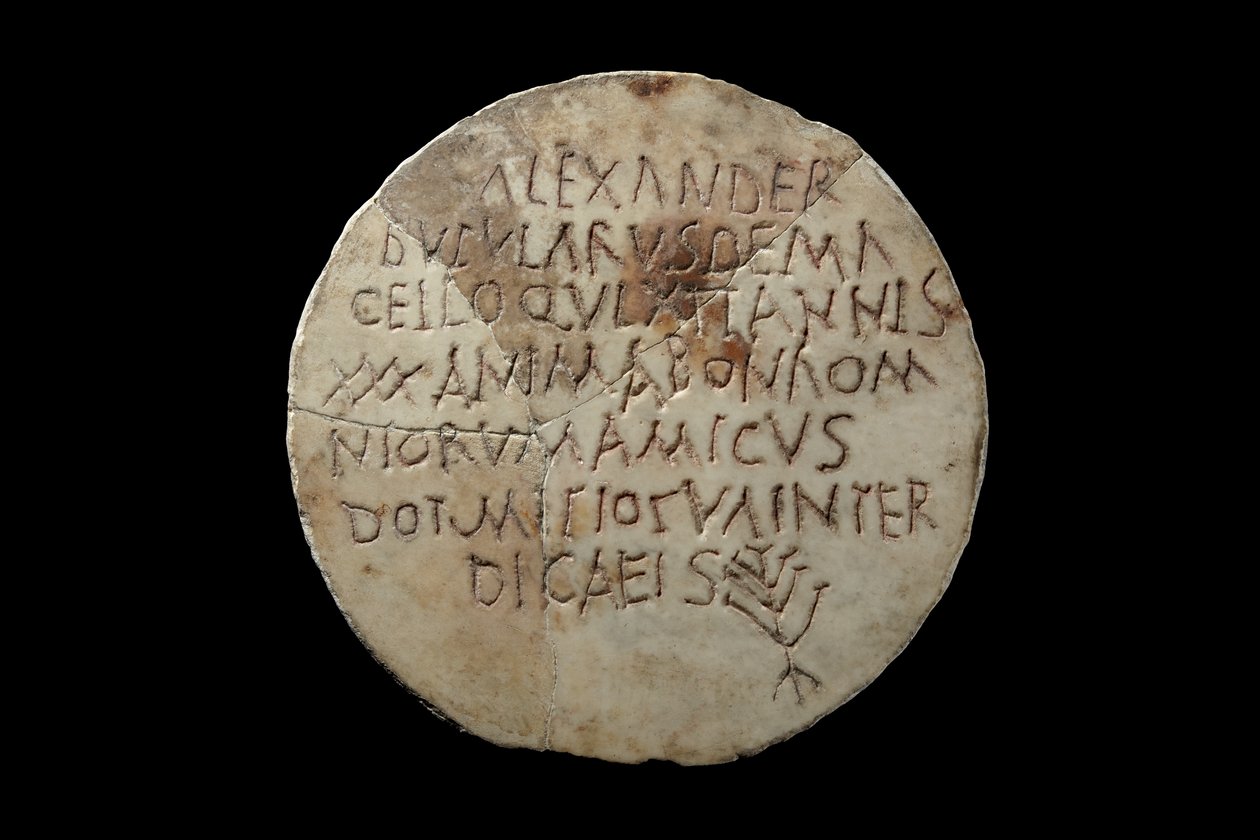 ALEXANDER
BVCVLARVSDEMA
CELLOQVIXITANNIS
XXXANIMABONAOM
NIORVMAMICVS
DOTMTIOTVAINTER
DICAEIS